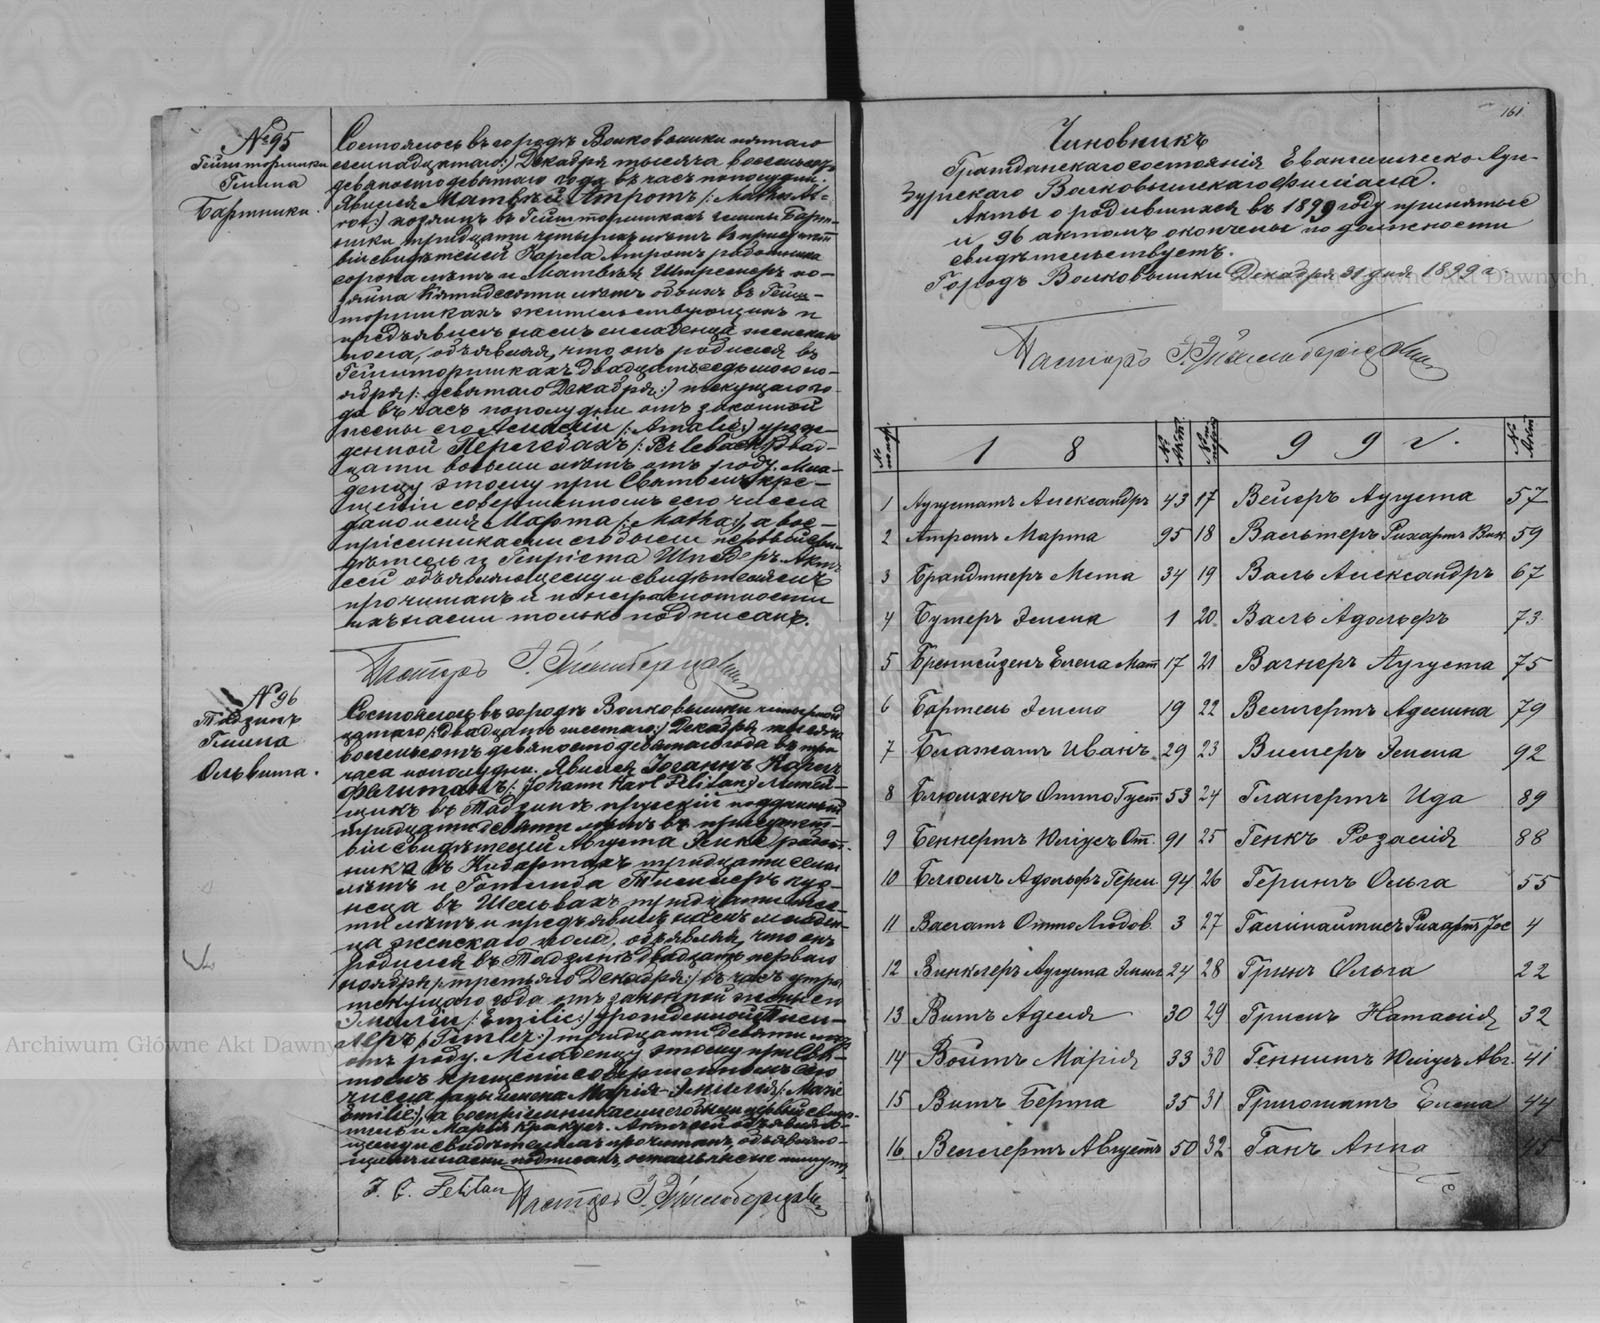 №95
Гмина
Бартники.
Состоялось въ городѣ Волковышки пятаго
(семнадцатаго:) Декабря тысяча восемьсотъ
девяностодевятаго года въ часъ пополудни.
Явился Матвѣй Атротъ /: Mathes At-
rot:) хозяинъ въ гмины Барт-
ники, тридцати четырехъ лѣтъ въ присутст
віи свидѣтелей Карла Атротъ работника
сорока лѣтъ и Матвѣя Штремперъ хо-
зяина пятидесяти лѣтъ обоихъ въ
жительствующихъ и
предъявилъ намъ младенца женскаго
пола, объявляя, что онъ родился въ
двадцатьседьмого но-
ября /: девятаго Декабря:) текущаго го-
да въ часъ пополудни отъ законной
жены его Амаліи /: Amalie:) урож-
денной Перлебахъ /: Perlebach:) двад-
цати восьми лѣтъ отъ роду. Мла-
денцу этому при Святомъ Кре-
щеніи совершенномъ сего числа
дано имя Марта /: Martha:), а вос-
пріемниками его были первый сви-
дѣтель и Шпедеръ. Актъ
сей объявляющему и свидѣтелямъ
прочитанъ и по неграмотности
ихъ нами только подписанъ.
Пасторъ
№ 96
Тадзинъ
Гмина
Ольвита.
Состоялось въ городѣ Волковышки четырнад
цатаго /: двадцать шестаго:) Декабря тысяча
восемьсотъ девяностодевятаго года въ три
часа пополудни. Явился Іоганнъ Карлъ
Фелитанъ /: Johann Karl Felitan:)
въ Тадзинѣ прусскій подданный
тридцати девяти лѣтъ въ присутст-
віи свидѣтелей Августа работ-
ника въ Кибартахъ тридцати семи
лѣтъ и Готлиба Тимлеръ куз-
неца въ
ти лѣтъ и предъявилъ намъ младен-
ца женскаго пола, объявляя, что онъ
родился въ Тадзинѣ двадцать перваго
ноября /: третьяго Декабря:) въ часъ утра
текущаго года отъ законной жены его
Эмиліи /: Emilie:) урожденной Тим-
леръ /: Timler:) тридцати девяти лѣтъ
отъ роду. Младенцу этому при Свя-
томъ крещеніи совершенномъ сего
числа даны имена Марія-Эмилія /: Marie
Emilie:), а воспріемниками его были первый свидѣ-
тель и Марія Кракусъ. Актъ сей объявляю-
щему и свидѣтелямъ прочитанъ, объявляю-
щимъ и нами подписанъ, остальные
J. C. Felitan Пасторъ
161
Чиновникъ
Гражданскаго состоянія Евангелическо-Аугс-
бургскаго Волковышскаго филіала.
Акты о родившихся въ 1899 году принятые
и 96 актомъ окончены по должности
свидѣтельствуетъ.
Городъ Волковышки Декабря 31 дня 1899 г.
Пасторъ
1 8 9 9 г.
1 Аугустатъ Александръ 43 17 Вейеръ Аугуста 57
2 Атротъ Марта 95 18 Вальтеръ Рихартъ Вик. 59
3 Брандтнеръ Мета 34 19 Валь Александръ 67
4 Бутеръ Эмилія 1 20 Валь Адольфъ 73
5 Бремсизенъ Елена Мат 17 21 Вагнеръ Аугуста 75
6 Бартель Эмма 19 22 Веллертъ Аделина 79
7 Блажатъ Иванъ 29 23 Вилеръ Эмма 92
8 Блюмхенъ Отто Густ 53 24 Гланертъ Ида 89
9 Беннертъ Юліусъ От. 91 25 Генкъ Розалія 88
10 Блюмъ Адольфъ Герм. 94 26 Герингъ Ольга 55
11 Валатъ Отто Людов. 3 27 Галинайтисъ Рихартъ Іос 4
12 Винклеръ Аугуста Эмил. 24 28 Гринъ Ольга 22
13 Витъ Аделя 30 29 Грилъ Наталія 32
14 Войтъ Марія 33 30 Геннигъ Юліусъ Авг. 41
15 Витъ Берта 35 31 Григотатъ Елена 44
16 Веллертъ Августъ 50 32 Ганъ Анна 45
Archiwum Główne Akt Dawnych
Archiwum Główne Akt Dawnych